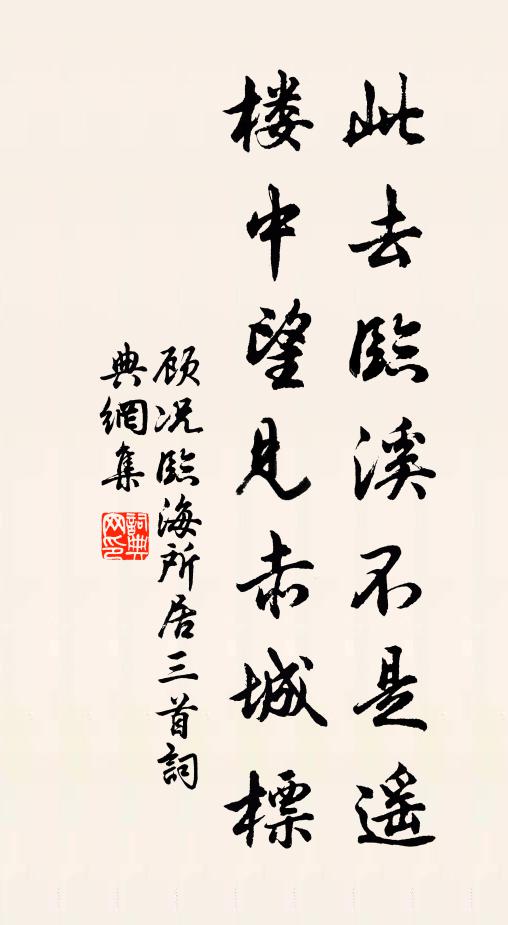 此去臨溪不是遥
楼中望見赤城標
顾况臨海所居三首詞
典網集
詞典
网印